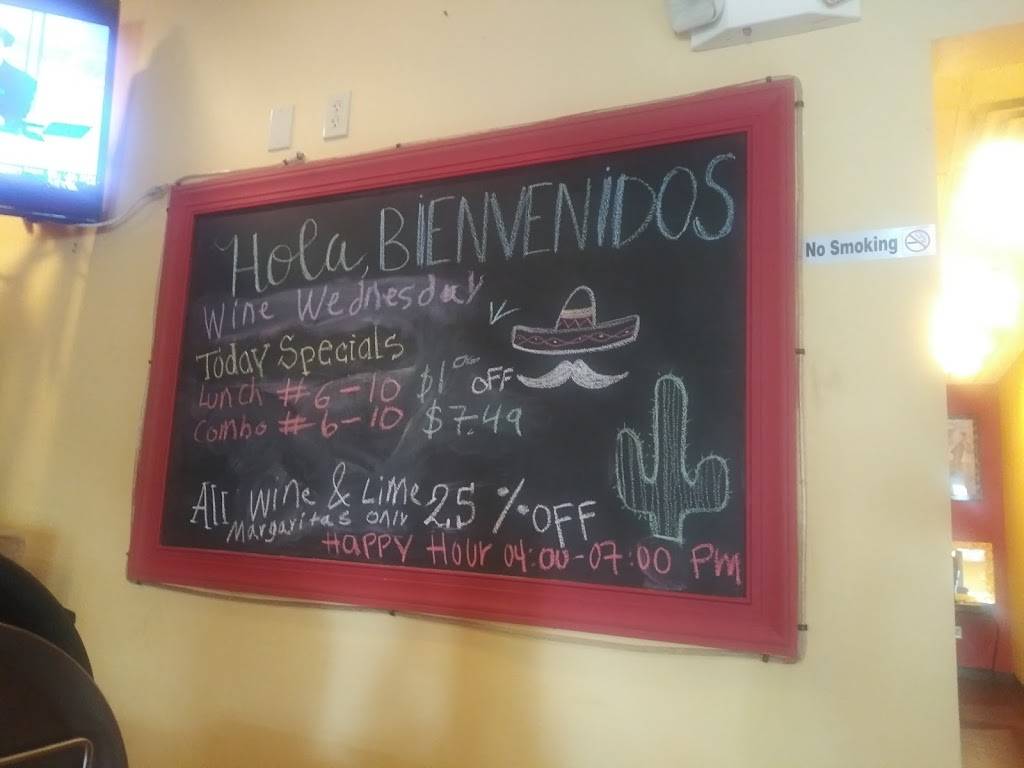 Hola, BiENVENiDOS
Wine Wednesday
Today Specials
Lunch # 6-10 $1.00 OFF
Combo # 6-10 $7.49
All Wine & Lime 25 % OFF
Margaritas only
HAPPY HOUR 04:00-07:00 PM
No Smoking